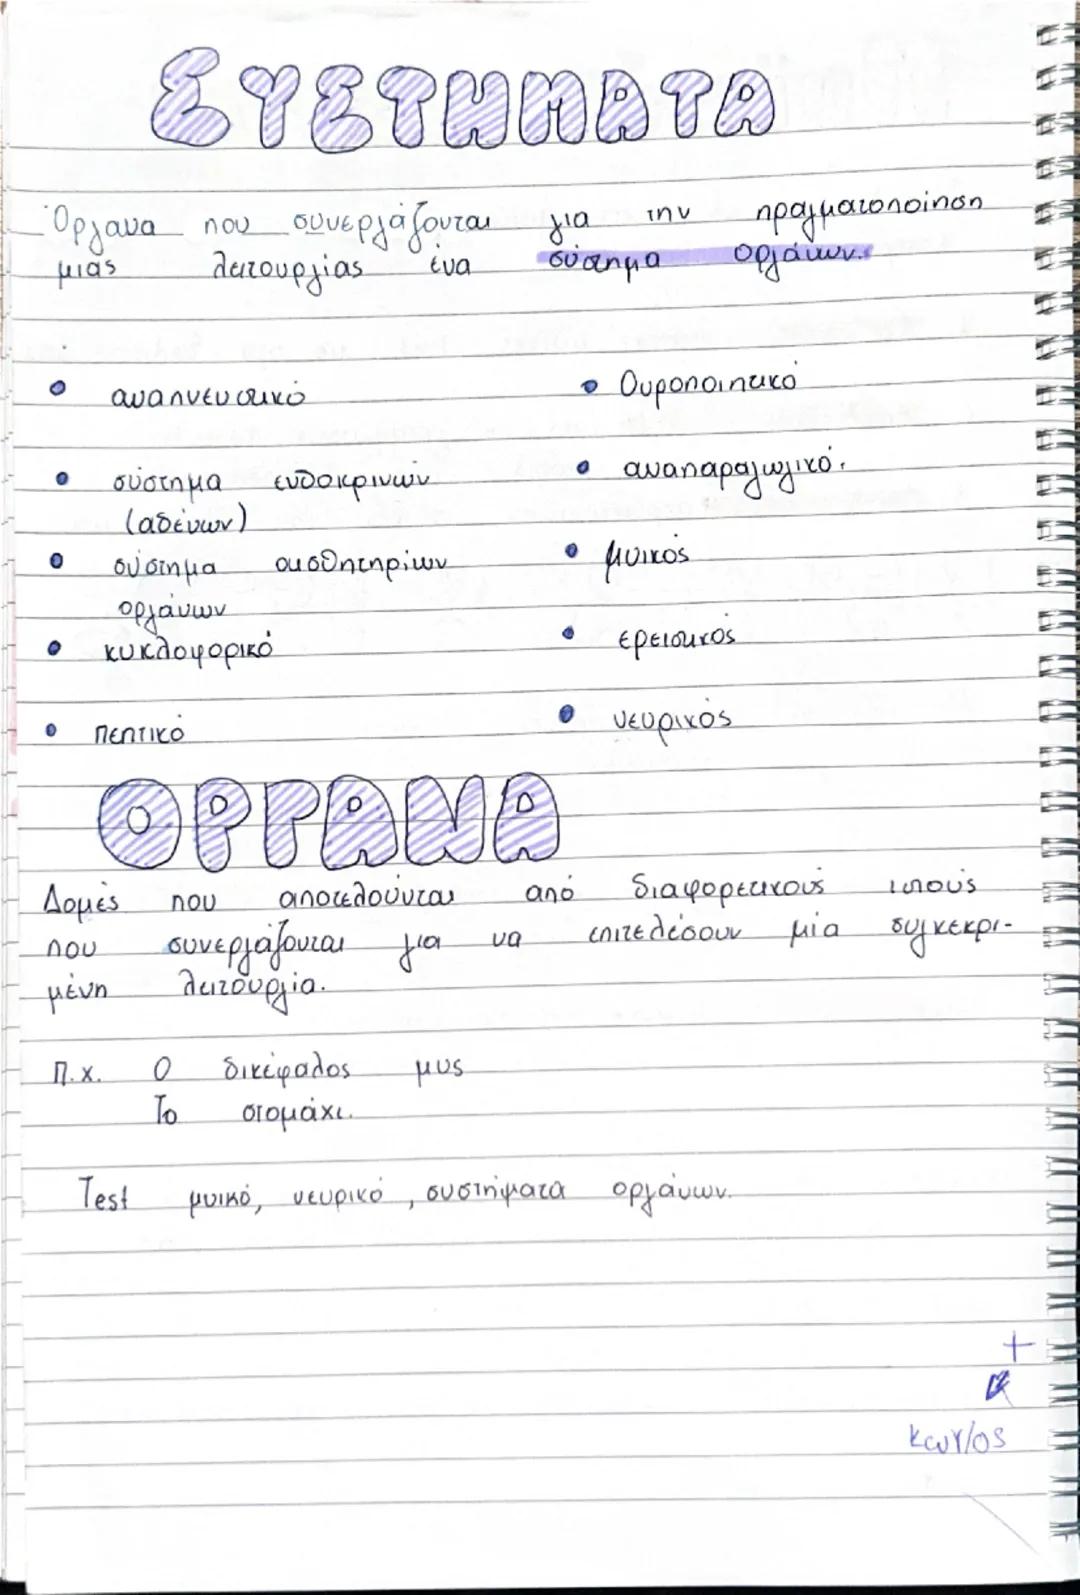 ΣΥΣΤΗΜΑΤΑ
Όργανα που συνεργάζονται για την πραγματοποίηση
μιας λειτουργίας ένα σύστημα οργάνων.
• αναπνευστικό
• Ουροποιητικό
• σύστημα ενδοκρινών
(αδένων)
• αναπαραγωγικό.
• σύστημα αισθητηρίων
οργάνων
• μυικός
• κυκλοφορικό
• ερειστικός
• πεπτικό
• νευρικός
ΟΡΓΑΝΑ
Δομές που αποτελούνται από διαφορετικούς ιστούς
που συνεργάζονται για να επιτελέσουν μία συγκεκρι-
μένη λειτουργία.
Π.χ. Ο δικέφαλος μυς
Το στομάχι.
Test μυικό, νευρικό, συστήματα οργάνων.
+